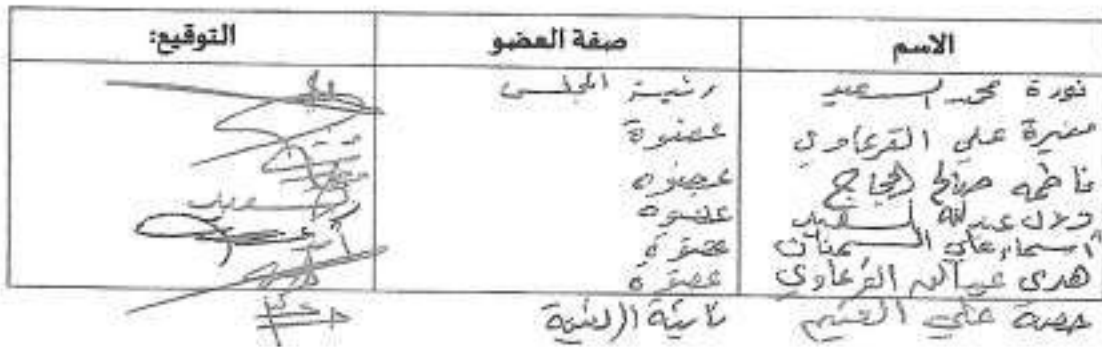 الاسم صفة العضو التوقيع:
نورة محمد السعيد رئيسة المجلس
منيرة علي القرعاوي عضوة
فاطمه صالح الحجاج عضوه
عبدالله السعيد عضوه
اسماء علي السمنان عضوة
هدى عبدالله القرعاوي عضوة
حصة علي نائبة الرئيسة